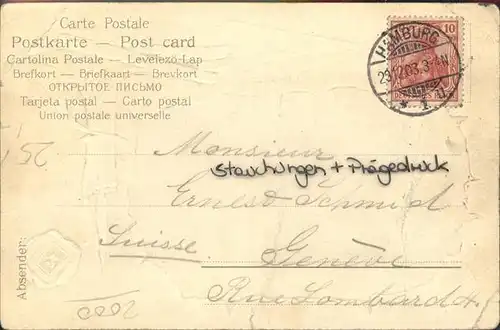 Carte Postale
Postkarte — Post card
Cartolina Postale — Levelező-Lap
Brefkort — Briefkaart — Brevkort
ОТКРЫТОЕ ПИСЬМО
Tarjeta postal — Carto postal
Union postale universelle
HAMBURG
10
Monsieur
Stauchungen + Prägedruck
Ernest Schmid
Suisse.
Genève
Rue Lombard 4.
Absender: